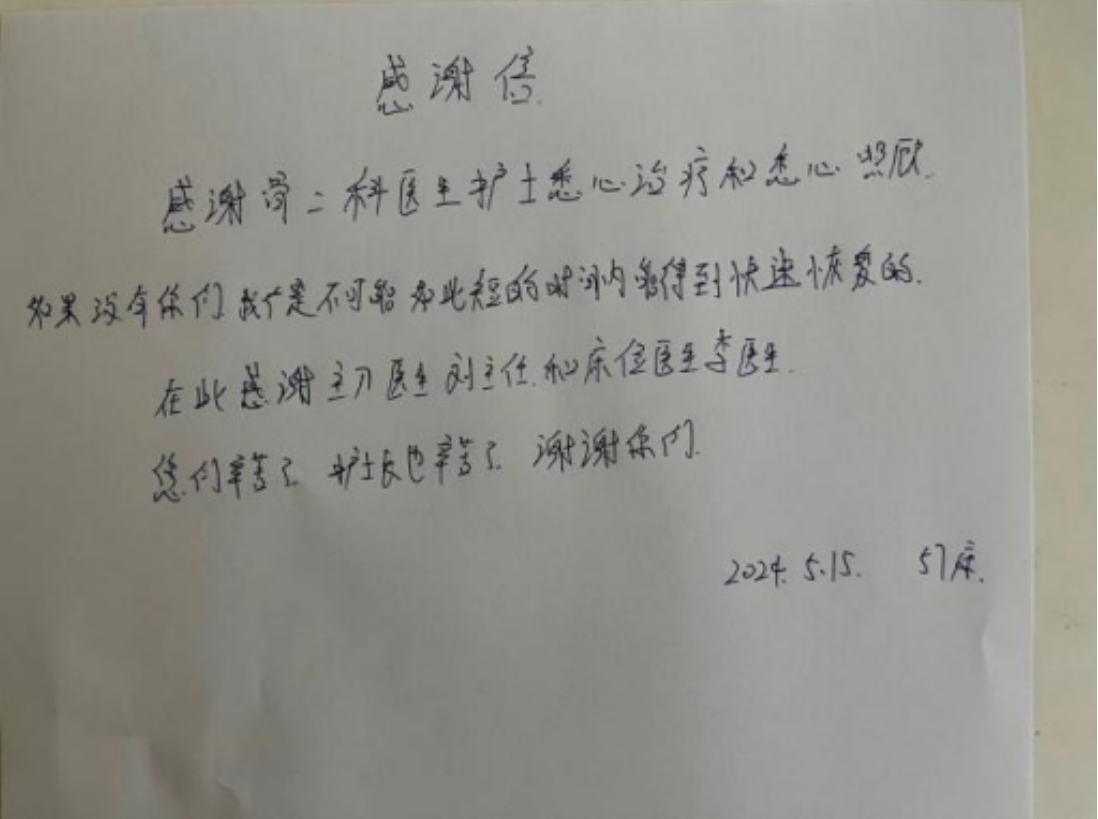 感谢信
感谢骨二科医生护士悉心治疗和悉心照顾.
如果没有你们我们是不可能如此短的时间内能得到快速恢复的.
在此感谢主刀医生刘主任.和床位医生李医生.
您们辛苦了 护士长也辛苦了 谢谢你们.
2024.5.15. 57床.